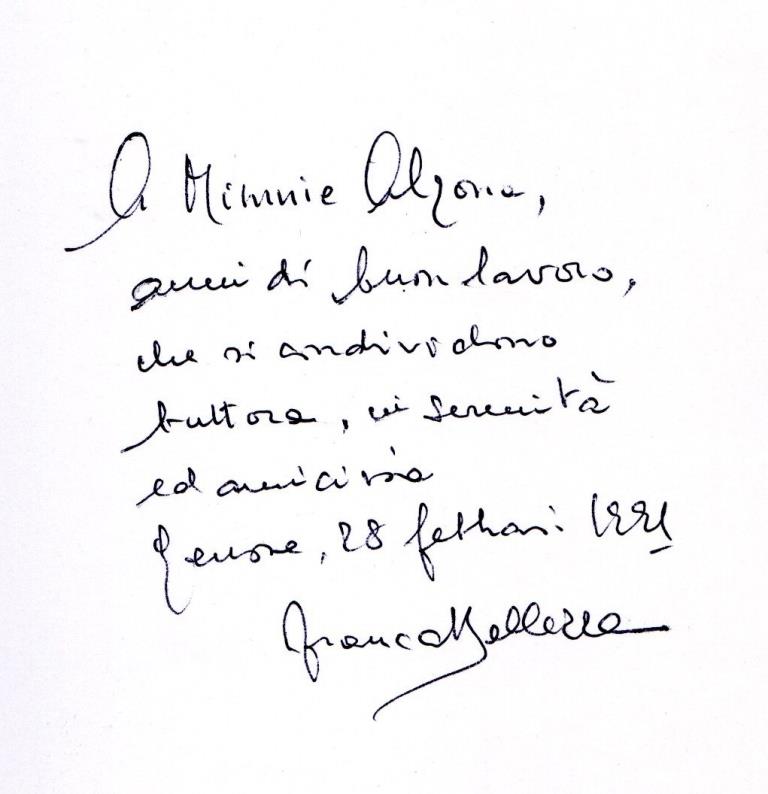 A Minnie Alzona,
anni di buon lavoro,
che si condividono
tuttora, in serenità
ed amicizia
Genova, 28 febbraio 1991
Franca Bellezza